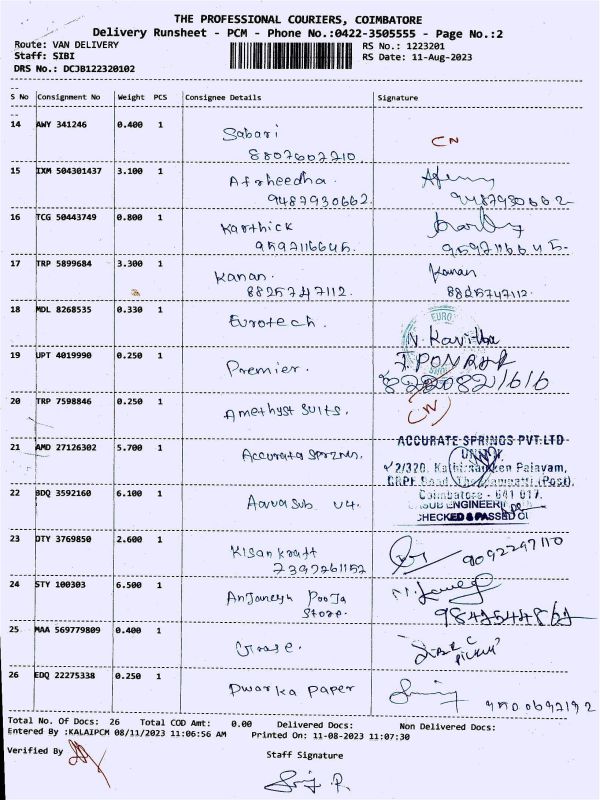 THE PROFESSIONAL COURIERS, COIMBATORE
Delivery Runsheet - PCM - Phone No.:0422-3505555 - Page No.:2
Route: VAN DELIVERY RS No.: 1223201
Staff: SIBI RS Date: 11-Aug-2023
DRS No.: DCJB122320102
S No Consignment No Weight PCS Consignee Details Signature
14 AWY 341246 0.400 1 Sabari CN
8807607710
15 IXM 504301437 3.100 1 Afsheedha
9487930662 9487930662
16 TCG 50443749 0.800 1 Karthick
9597116645 9597116645
17 TRP 5899684 3.300 1 Kanan Kanan
8825747112 8825747112
18 MDL 8268535 0.330 1 Eurotech. EURO
N. Kavitha
19 UPT 4019990 0.250 1 Premier.
20 TRP 7598846 0.250 1 Amethyst suits. CN
21 AMD 27126302 5.700 1 ACCURATE SPRINGS PVT.LTD
Coimbatore - 641 017.
22 BDQ 3592160 6.100 1 Aarvasub U4. SUB ENGINEERI
CHECKED & PASSED
23 DTY 3769850 2.600 1 Kisankraft 9092247110
7392261152
24 STY 100303 6.500 1 Anjaneya Pooja
Store.
25 MAA 569779809 0.400 1
26 EDQ 22275338 0.250 1 Dwarka paper
Total No. Of Docs: 26 Total COD Amt: 0.00 Delivered Docs: Non Delivered Docs:
Entered By :KALAIPCM 08/11/2023 11:06:56 AM Printed On: 11-08-2023 11:07:30
Verified By Staff Signature